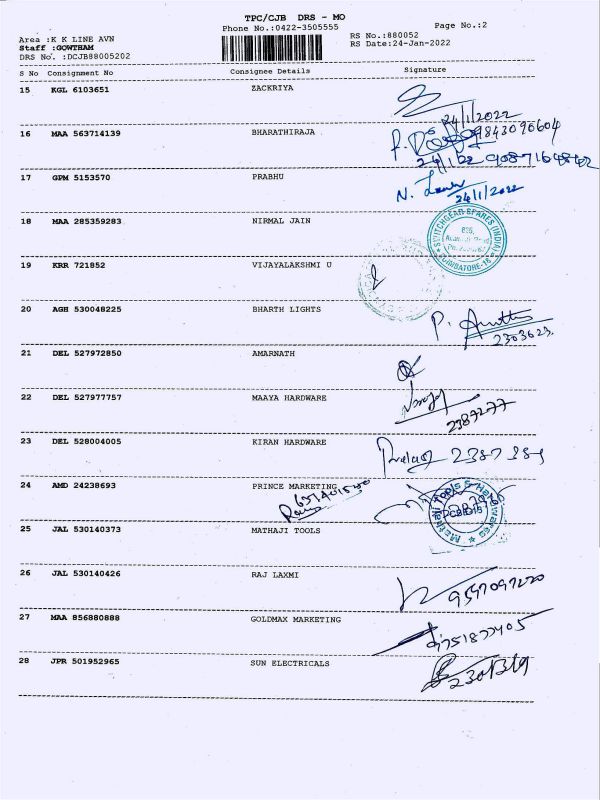 TPC/CJB DRS - MO
Phone No.:0422-3505555
Page No.:2
Area :K K LINE AVN
Staff :GOWTHAM
DRS No. :DCJB88005202
RS No.:880052
RS Date:24-Jan-2022
S No Consignment No Consignee Details Signature
15 KGL 6103651 ZACKRIYA
24/1/2022
9843090604
16 MAA 563714139 BHARATHIRAJA
24/1/22 9087164842
17 GPM 5153570 PRABHU
24/1/2022
18 MAA 285359283 NIRMAL JAIN
SWITCHGEAR SPARES (INDIA)
COIMBATORE-18
19 KRR 721852 VIJAYALAKSHMI U
20 AGH 530048225 BHARTH LIGHTS
2303623
21 DEL 527972850 AMARNATH
22 DEL 527977757 MAAYA HARDWARE
2387277
23 DEL 528004005 KIRAN HARDWARE
24 AMD 24238693 PRINCE MARKETING
Mathaji Tools & Hardwares
25 JAL 530140373 MATHAJI TOOLS
26 JAL 530140426 RAJ LAXMI
27 MAA 856880888 GOLDMAX MARKETING
9751877405
28 JPR 501952965 SUN ELECTRICALS